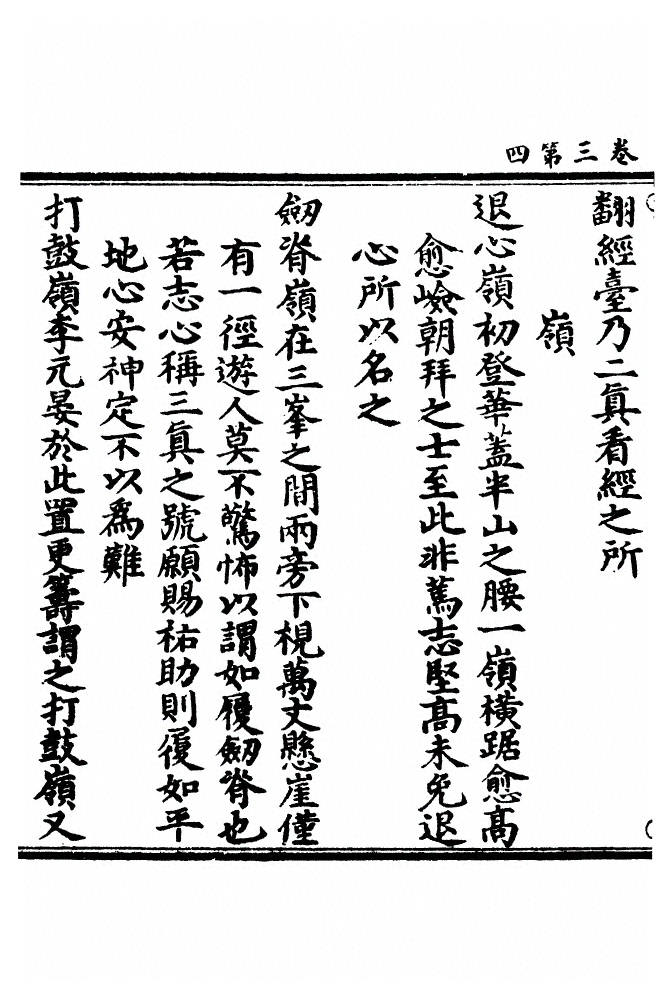 卷三第四
翻經臺乃二眞看經之所
嶺
退心嶺初登華蓋半山之腰一嶺橫踞愈高
愈嶮朝拜之士至此非篤志堅高未免退
心所以名之
劒脊嶺在三峯之間兩旁下梘萬丈懸崖僅
有一徑遊人莫不驚怖以謂如履劒脊也
若志心稱三眞之號願賜祐助則復如平
地心安神定不以爲難
打鼓嶺李元晏於此置更籌謂之打鼓嶺又